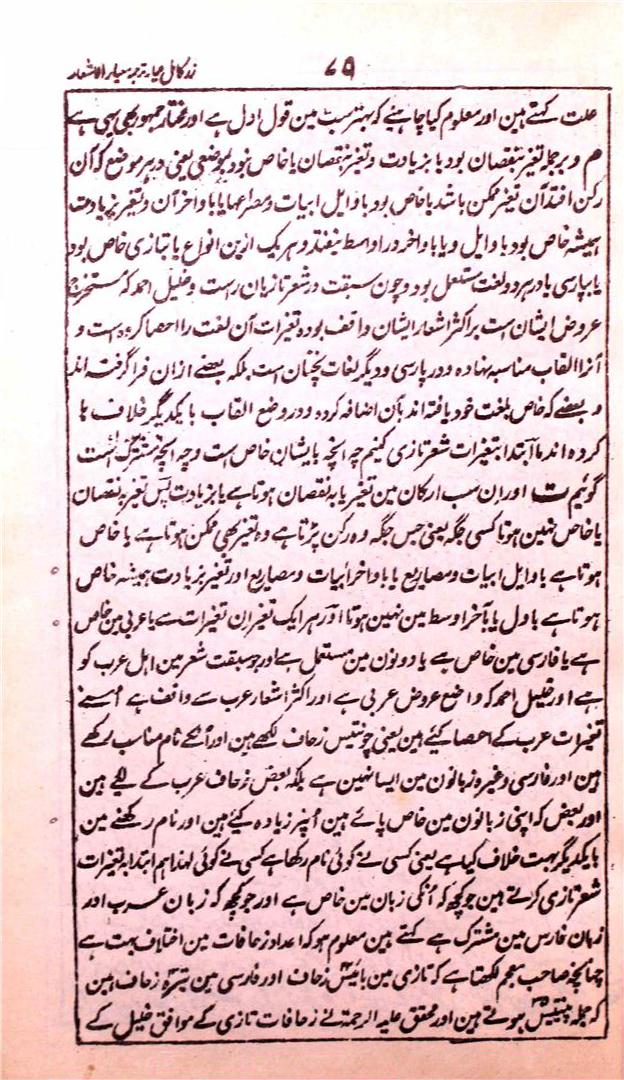 ۷۹
زر کامل عیار ترجمہ معیار الاشعار
علت کہتے ہین اور معلوم کیا چاہیئے کہ بہتر سب مین قول اول ہے اور مختار جمہور بھی یہی ہے
م و بر جملہ تغیر بنقصان بود یا بزیادت و تغیر بنقصان یا خاص نبود بموضعی یعنی در ہر موضع کہ آن
رکن افتد آن تغیر ممکن باشد یا خاص بود باوایل ابیات و مصراعہا یا باواخر آن و تغیر بزیادت
ہمیشہ خاص بود باوایل و یا باواخر و در اوسط نیفتد و ہر یک ازین انواع یا بتازی خاص بود
یا بپارسی یا در ہر دو لغت مستعمل بود و چون سبقت در شعر تازیان راست و خلیل احمد کہ مستخرج
عروض ایشان است بر اکثر اشعار ایشان واقف بودہ تغیرات آن لغت را احصا کردہ است و
آنرا القاب مناسبہ نہادہ و در پارسی و دیگر لغات نچنان است بلکہ بعضے ازان فرا گرفتہ اند
و بعضے کہ خاص بلغت خود یافتہ اند بآن اضافہ کردہ و در وضع القاب بایکدیگر خلاف ہا
کردہ اند ما ابتدا بتغیرات شعر تازی کنیم چہ انچہ بایشان خاص است و چہ انچہ مشترک است
گوئیم ت اور ان سب ارکان مین تغیر یا بہ نقصان ہوتا ہے یا بزیادت پس تغیر بہ نقصان
یا خاص نہین ہوتا کسی جگہ یعنی جس جگہ وہ رکن پڑتا ہے وہ تغیر بھی ممکن ہوتا ہے یا خاص
ہوتا ہے باوایل ابیات و مصاریع یا باواخر ابیات و مصاریع اور تغیر بزیادت ہمیشہ خاص
ہوتا ہے باول یا بآخر اوسط مین نہین ہوتا اور ہر ایک تغیر ان تغیرات سے یا عربی مین خاص
ہے یا فارسی مین خاص ہے یا دونون مین مستعمل ہے اور جو سبقت شعر مین اہل عرب کو
ہے اور خلیل احمد کہ واضع عروض عربی ہے اور اکثر اشعار عرب سے واقف ہے اُسنے
تغیرات عرب کے احصا کئے ہین یعنی چونتیس زحاف لکھے ہین اور اُنکے نام مناسب رکھے
ہین اور فارسی وغیرہ زبانون مین ایسا نہین ہے بلکہ بعض زحاف عرب کے لئے ہین
اور بعض کہ اپنی زبانون مین خاص پائے ہین اُنپر زیادہ کیئے ہین اور نام رکھنے مین
بایکدیگر بہت خلاف کیا ہے یعنی کسی نے کوئی نام رکھا ہے کسی نے کوئی لہذا ہم ابتدا بہ تغیرات
شعر تازی کرتے ہین جو کچھ کہ اُنکی زبان مین خاص ہے اور جو کچھ کہ زبان عرب اور
زبان فارس مین مشترک ہے کہتے ہین معلوم ہو کہ اعداد زحافات مین اختلاف بہت ہے
چنانچہ صاحب معجم لکھتا ہے کہ تازی مین بائیس زحاف اور فارسی مین تیرہ زحاف ہین
کہ جملہ پینتیس ہوتے ہین اور محقق علیہ الرحمۃ نے زحافات تازی کے موافق خلیل کے